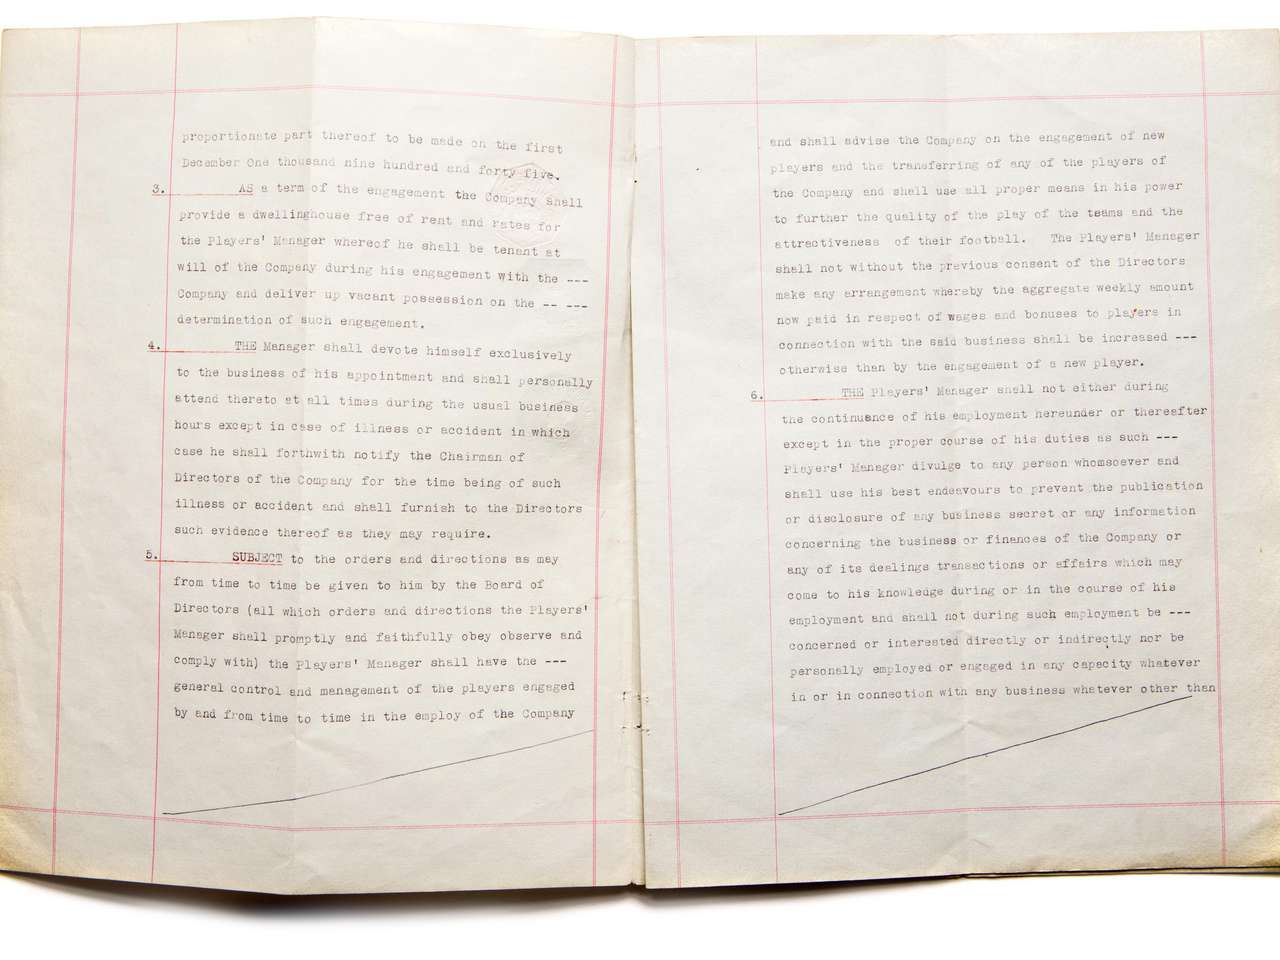 proportionate part thereof to be made on the first
December One thousand nine hundred and forty five.
3. AS a term of the engagement the Company shall
provide a dwellinghouse free of rent and rates for
the Players' Manager whereof he shall be tenant at
will of the Company during his engagement with the ---
Company and deliver up vacant possession on the -- ---
determination of such engagement.
4. THE Manager shall devote himself exclusively
to the business of his appointment and shall personally
attend thereto at all times during the usual business
hours except in case of illness or accident in which
case he shall forthwith notify the Chairman of
Directors of the Company for the time being of such
illness or accident and shall furnish to the Directors
such evidence thereof as they may require.
5. SUBJECT to the orders and directions as may
from time to time be given to him by the Board of
Directors (all which orders and directions the Players'
Manager shall promptly and faithfully obey observe and
comply with) the Players' Manager shall have the ---
general control and management of the players engaged
by and from time to time in the employ of the Company
and shall advise the Company on the engagement of new
players and the transferring of any of the players of
the Company and shall use all proper means in his power
to further the quality of the play of the teams and the
attractiveness of their football. The Players' Manager
shall not without the previous consent of the Directors
make any arrangement whereby the aggregate weekly amount
now paid in respect of wages and bonuses to players in
connection with the said business shall be increased ---
otherwise than by the engagement of a new player.
6. THE Players' Manager shall not either during
the continuance of his employment hereunder or thereafter
except in the proper course of his duties as such ---
Players' Manager divulge to any person whomsoever and
shall use his best endeavours to prevent the publication
or disclosure of any business secret or any information
concerning the business or finances of the Company or
any of its dealings transactions or affairs which may
come to his knowledge during or in the course of his
employment and shall not during such employment be ---
concerned or interested directly or indirectly nor be
personally employed or engaged in any capacity whatever
in or in connection with any business whatever other than